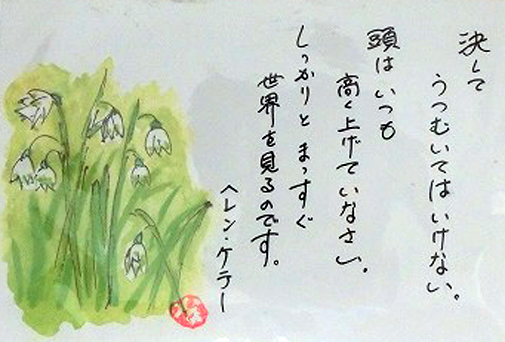 決して
うつむいてはいけない。
頭はいつも
高く上げていなさい。
しっかりとまっすぐ
世界を見るのです。
ヘレン・ケラー